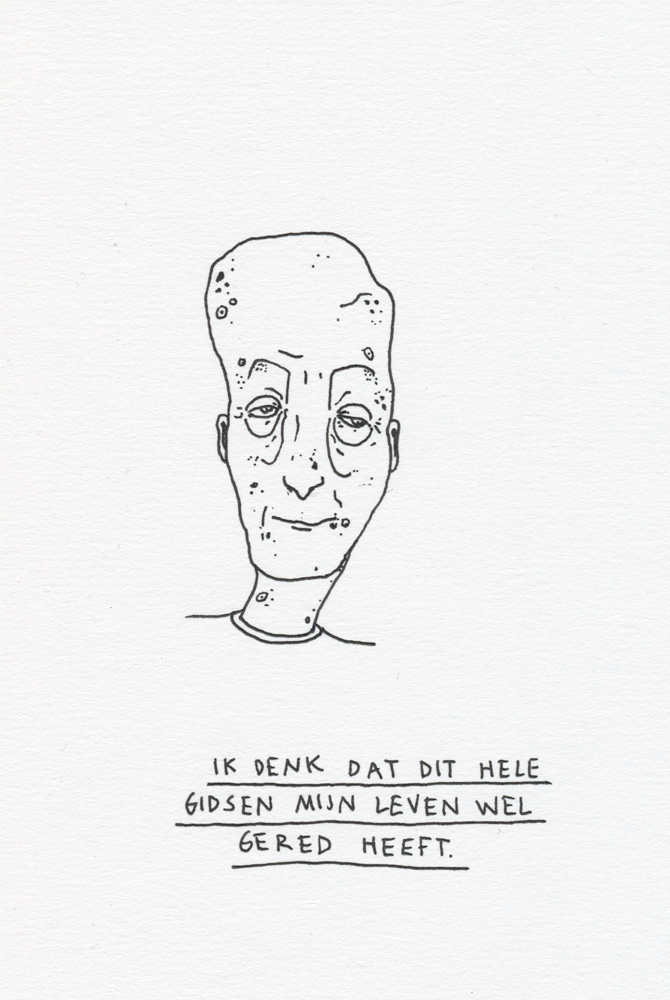 IK DENK DAT DIT HELE
GIDSEN MIJN LEVEN WEL
GERED HEEFT.